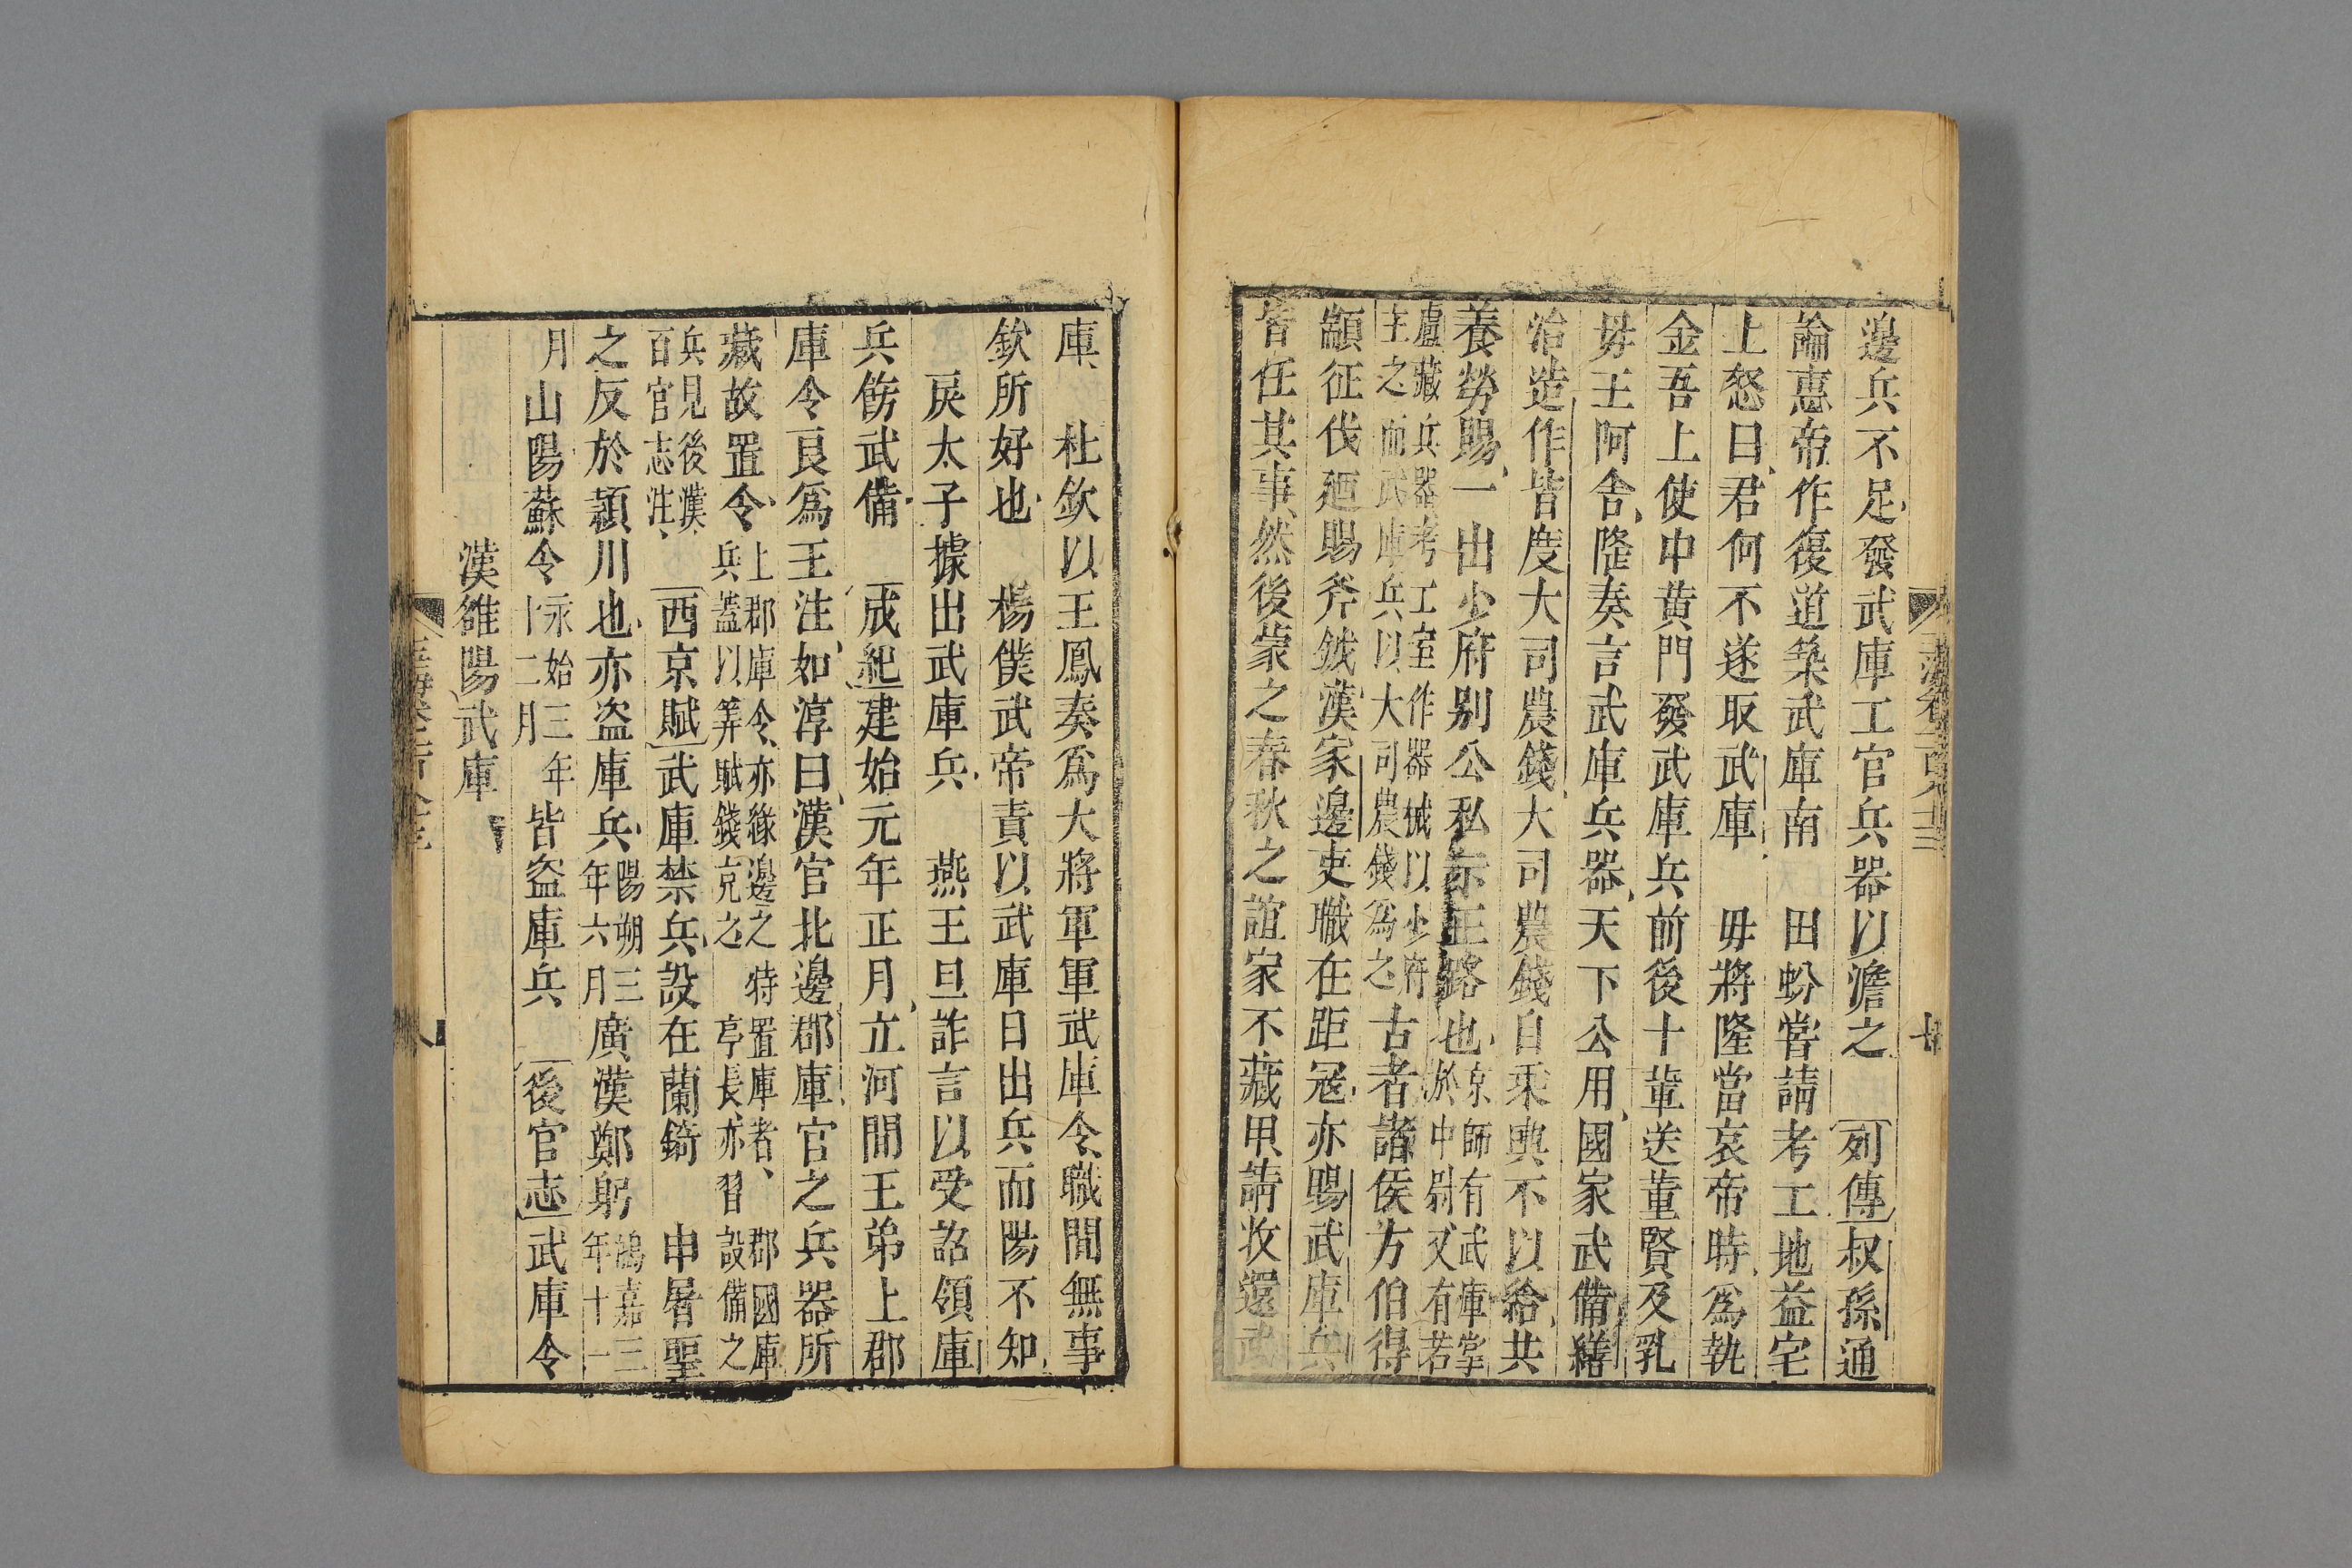 邊兵不足發武庫工官兵器以澹之 列傳叔孫通
論惠帝作復道築武庫南 田蚡嘗請考工地益宅
上怒曰君何不遂取武庫 毋將隆當哀帝時爲執
金吾上使中黄門發武庫兵前後十輩送董賢及乳
毋王阿舍隆奏言武庫兵器天下公用國家武備繕
治造作皆度大司農錢大司農錢自乘輿不以給共
養勞賜一出少府别公私示正路也京師有武庫掌
於中尉又有若
盧藏兵器考工室作器械以少府
主之而武庫兵以大司農錢爲之古者諸侯方伯得
顓征伐廼賜斧鉞漢家邊吏職在距冦亦賜武庫兵
皆任其事然後蒙之春秋之誼家不藏甲請收還武
庫 杜欽以王鳳奏爲大將軍軍武庫令職閒無事
欽所好也 楊僕武帝責以武庫日出兵而陽不知
戾太子據出武庫兵 燕王旦詐言以受詔領庫
兵飭武備 成紀建始元年正月立河間王弟上郡
庫令良爲王注如淳曰漢官北邊郡庫官之兵器所
藏故置令上郡庫令亦緣邊之特置庫者郡國庫
兵蓋以筭賦錢充之亭長亦習設備之
兵見後漢
百官志注 西京賦武庫禁兵設在蘭錡 申屠聖
之反於潁川也亦盜庫兵陽朔三
年六月廣漢鄭躬鴻嘉三
年十一
月山陽蘇令永始三年
十二月皆盜庫兵 後官志武庫令
漢雒陽武庫